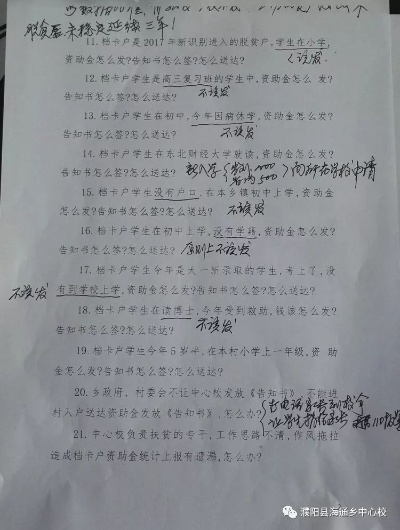 脱贫后来稳定延续三年！
11. 档卡户是2017年新识别进入的脱贫户，学生在小学，
资助金怎么发？告知书怎么签？怎么送达？
（该发）
12. 档卡户学生是高三复习班的学生中，资助金怎么 发？
告知书怎么签？怎么送达？
不该发
13. 档卡户学生在初中，今年因病休学，资助金怎么 发？
告知书怎么签？怎么送达？
不该发
14. 档卡户学生在东北财经大学就读，资助金怎么发？
告知书怎么签？怎么送达？
15. 档卡户学生没有户口，在本乡镇初中上学，资助金
怎么发？告知书怎么签？怎么送达？
不该发
16. 档卡户学生在初中上学，没有学籍，资助金怎么发？
告知书怎么签？怎么送达？
原则上不该发
17. 档卡户学生今年是大一新录取的学生，考上了，没
有到学校上学，资助金怎么发？告知书怎么签？怎么送达？
不该发
18. 档卡户学生在读博士，今年受到救助，钱该怎么发？
告知书怎么签？怎么送达？
不该发
19. 档卡户学生今年5岁半，在本村小学上一年级，资 助
金怎么发？告知书怎么签？怎么送达？
20. 乡政府、村委会不让中心校发放《告知书》，不能进
村入户送达资助金发放《告知书》，怎么办？
21. 中心校负责扶贫的专干，工作思路不清，作风拖拉
造成档卡户资助金统计上报有遗漏，怎么办？
濮阳县海通乡中心校